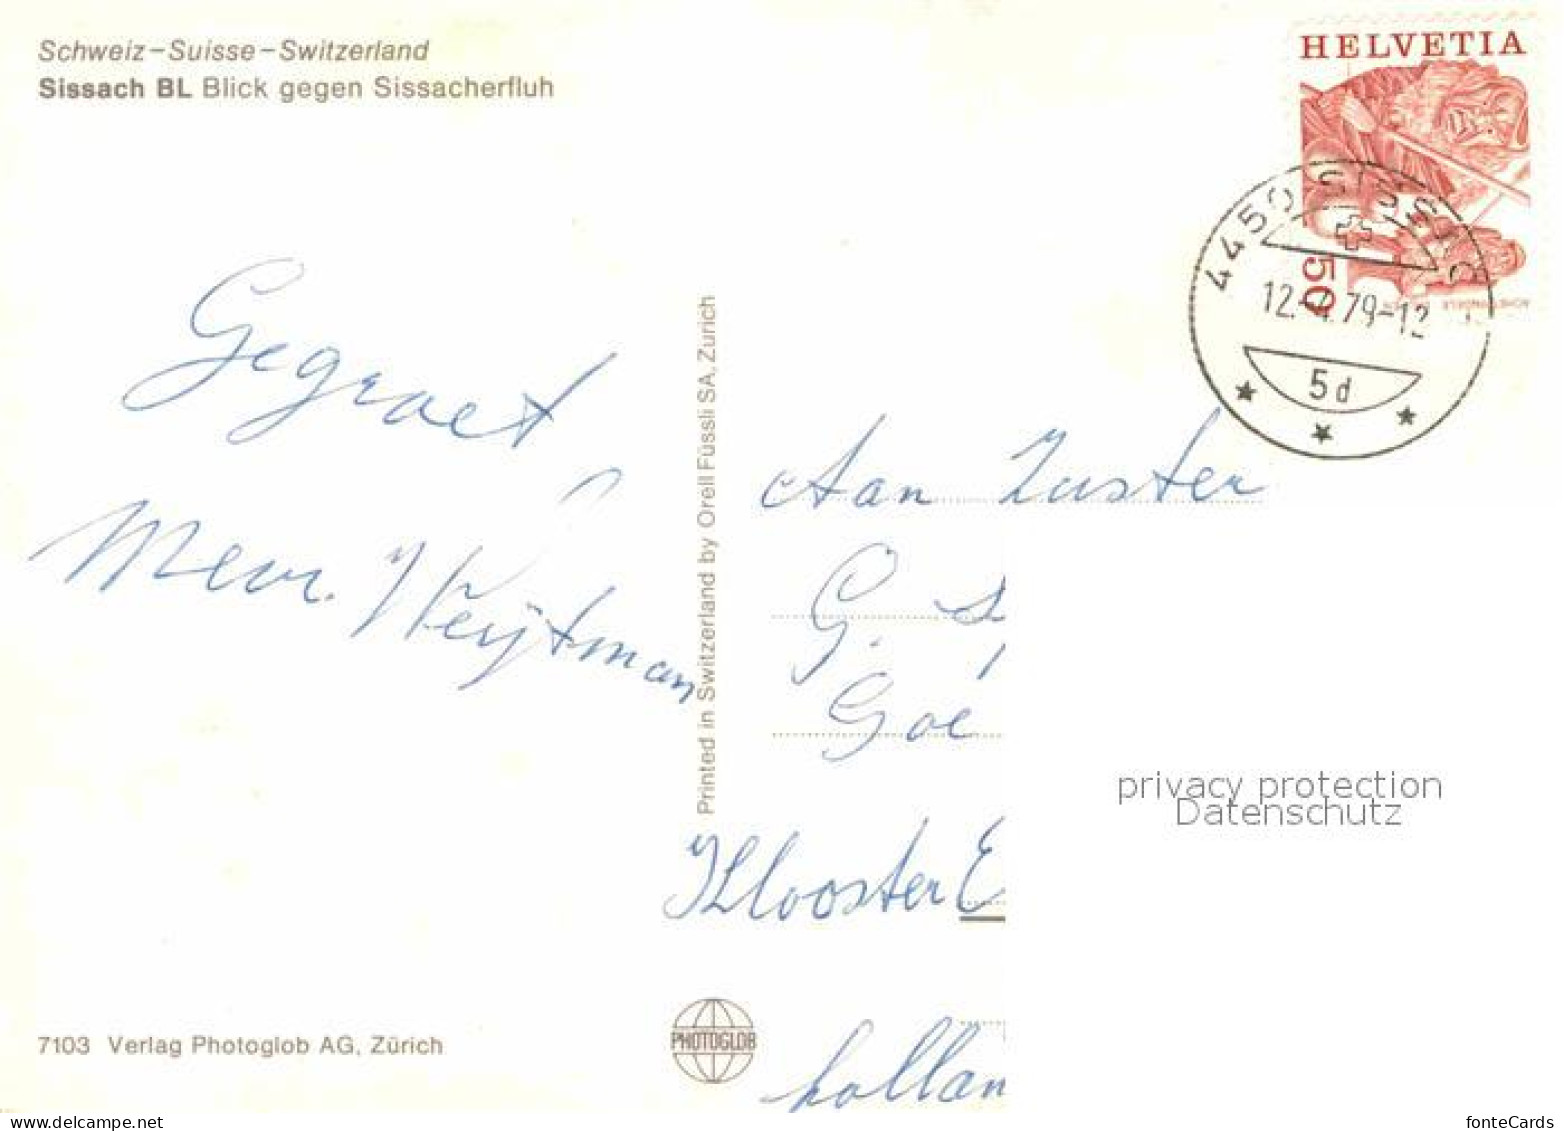 Schweiz – Suisse – Switzerland
Sissach BL Blick gegen Sissacherfluh
HELVETIA
50
4450 SISSACH
12.-4.79-12
5d
Gegroet
Mevr. Weijtman
Printed in Switzerland by Orell Füssli SA, Zürich
Aan Zuster
G. S
Goe
Klooster E
hollan
privacy protection
Datenschutz
7103 Verlag Photoglob AG, Zürich
PHOTOGLOB
www.delcampe.net
fonteCards